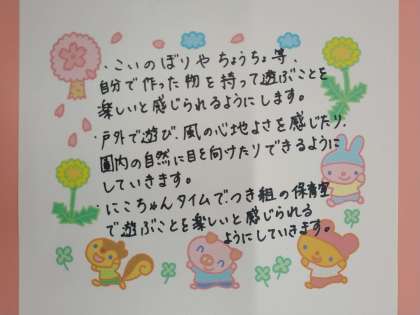 ・こいのぼりやちょうちょ等、
自分で作った物を持って遊ぶことを
楽しいと感じられるようにします。
・戸外で遊び、風の心地よさを感じたり、
園内の自然に目を向けたりできるように
していきます。
・にこちゃんタイムでつき組の保育室
で遊ぶことを楽しいと感じられる
ようにしていきます。